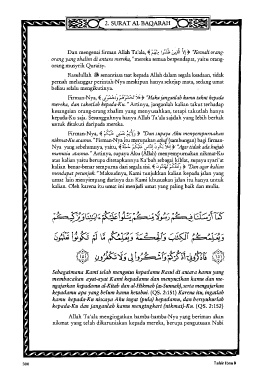 2. SURAT AL BAQARAH
Dan mengenai firman Allah Ta'ala, ﴾ إِلاَّ الَّذِينَ ظَلَمُوا مِنْهُمْ ﴿ "Kecuali orang-
orang yang zhalim di antara mereka," mereka semua berpendapat, yaitu orang-
orang musyrik Quraisy.
Rasulullah ﷺ senantiasa taat kepada Allah dalam segala keadaan, tidak
pernah melanggar perintah-Nya meskipun hanya sekejap mata, sedang umat
beliau selalu mengikutinya.
Firman-Nya, ﴾ فَلاَ تَخْشَوْهُمْ وَاخْشَوْنِي ﴿ "Maka janganlah kamu takut kepada
mereka, dan takutlah kepada-Ku." Artinya, janganlah kalian takut terhadap
keraguan orang-orang zhalim yang menyusahkan, tetapi takutlah hanya
kepada-Ku saja. Sesungguhnya hanya Allah Ta'ala sajalah yang lebih berhak
untuk ditakuti daripada mereka.
Firman-Nya, ﴾ وَلأُتِمَّ نِعْمَتِي عَلَيْكُمْ ﴿ "Dan supaya Aku menyempurnakan
nikmat-Ku atasmu." Firman-Nya ini merupakan athaf (sambungan) bagi firman-
Nya yang sebelumnya, yaitu, ﴾ لِئَلاَّ يَكُونَ لِلنَّاسِ عَلَيْكُمْ حُجَّةٌ ﴿ "Agar tidak ada hujjah
manusia atasmu." Artinya, supaya Aku (Allah) menyempurnakan nikmat-Ku
atas kalian yaitu berupa ditetapkannya Ka'bah sebagai kiblat, supaya syari'at
kalian benar-benar sempurna dari segala sisi. ﴾ وَلَعَلَّكُمْ تَهْتَدُونَ ﴿ "Dan agar kalian
mendapat petunjuk." Maksudnya, Kami tunjukkan kalian kepada jalan yang
umat lain menyimpang darinya dan Kami khususkan jalan itu hanya untuk
kalian. Oleh karena itu umat ini menjadi umat yang paling baik dan mulia.
كَمَا أَرْسَلْنَا فِيكُمْ رَسُولًا مِّنكُمْ يَتْلُوا عَلَيْكُمْ آيَاتِنَا وَيُزَكِّيكُمْ
وَيُعَلِّمُكُمُ الْكِتَابَ وَالْحِكْمَةَ وَيُعَلِّمُكُم مَّا لَمْ تَكُونُوا تَعْلَمُونَ
﴿١٥١﴾ فَاذْكُرُونِي أَذْكُرْكُمْ وَاشْكُرُوا لِي وَلَا تَكْفُرُونِ ﴿١٥٢﴾
Sebagaimana Kami telah mengutus kepadamu Rasul di antara kamu yang
membacakan ayat-ayat Kami kepadamu dan menyucikan kamu dan me-
ngajarkan kepadamu al-Kitab dan al-Hikmah (as-Sunnah), serta mengajarkan
kepadamu apa yang belum kamu ketahui. (QS. 2:151) Karena itu, ingatlah
kamu kepada-Ku niscaya Aku ingat (pula) kepadamu, dan bersyukurlah
kepada-Ku dan janganlah kamu mengingkari (nikmat)-Ku. (QS. 2:152)
Allah Ta'ala mengingatkan hamba-hamba-Nya yang beriman akan
nikmat yang telah dikaruniakan kepada mereka, berupa pengutusan Nabi
Tafsir Ibnu